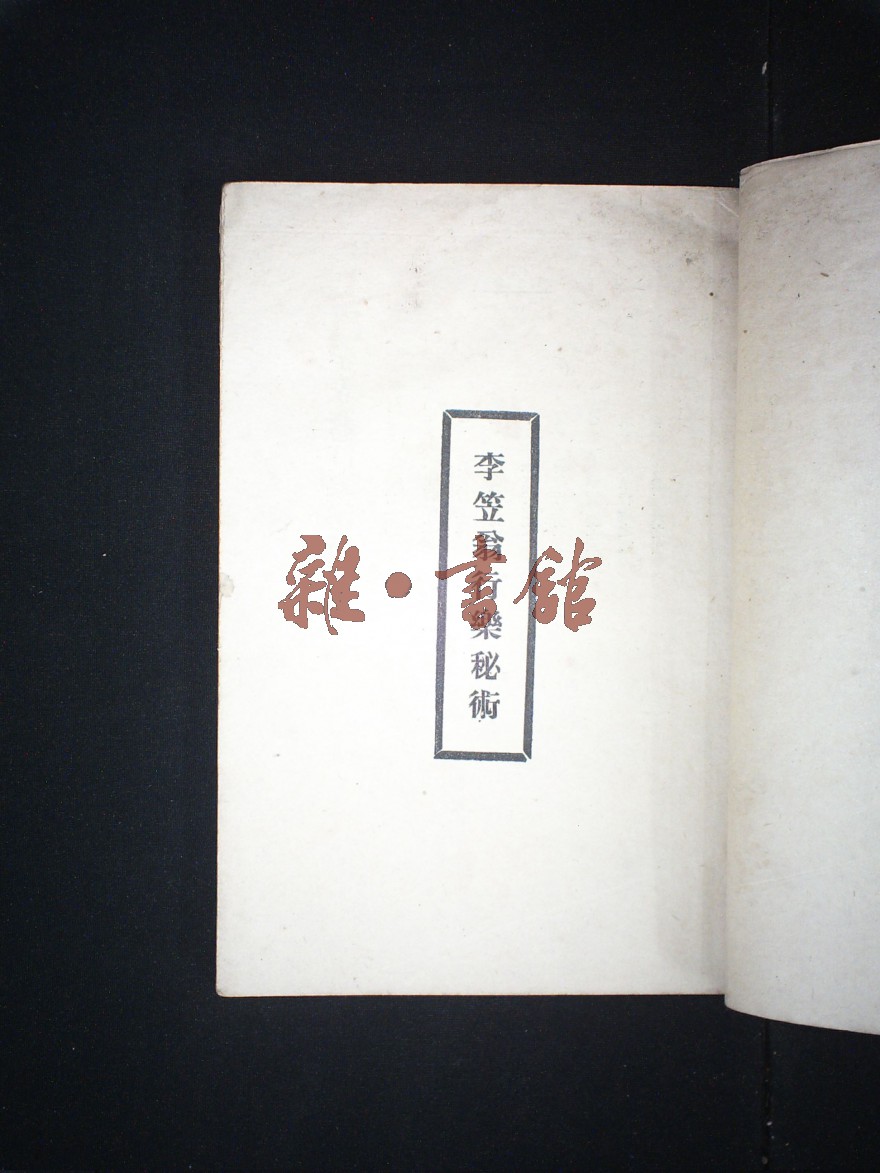 李笠翁行樂秘術
雜·書館